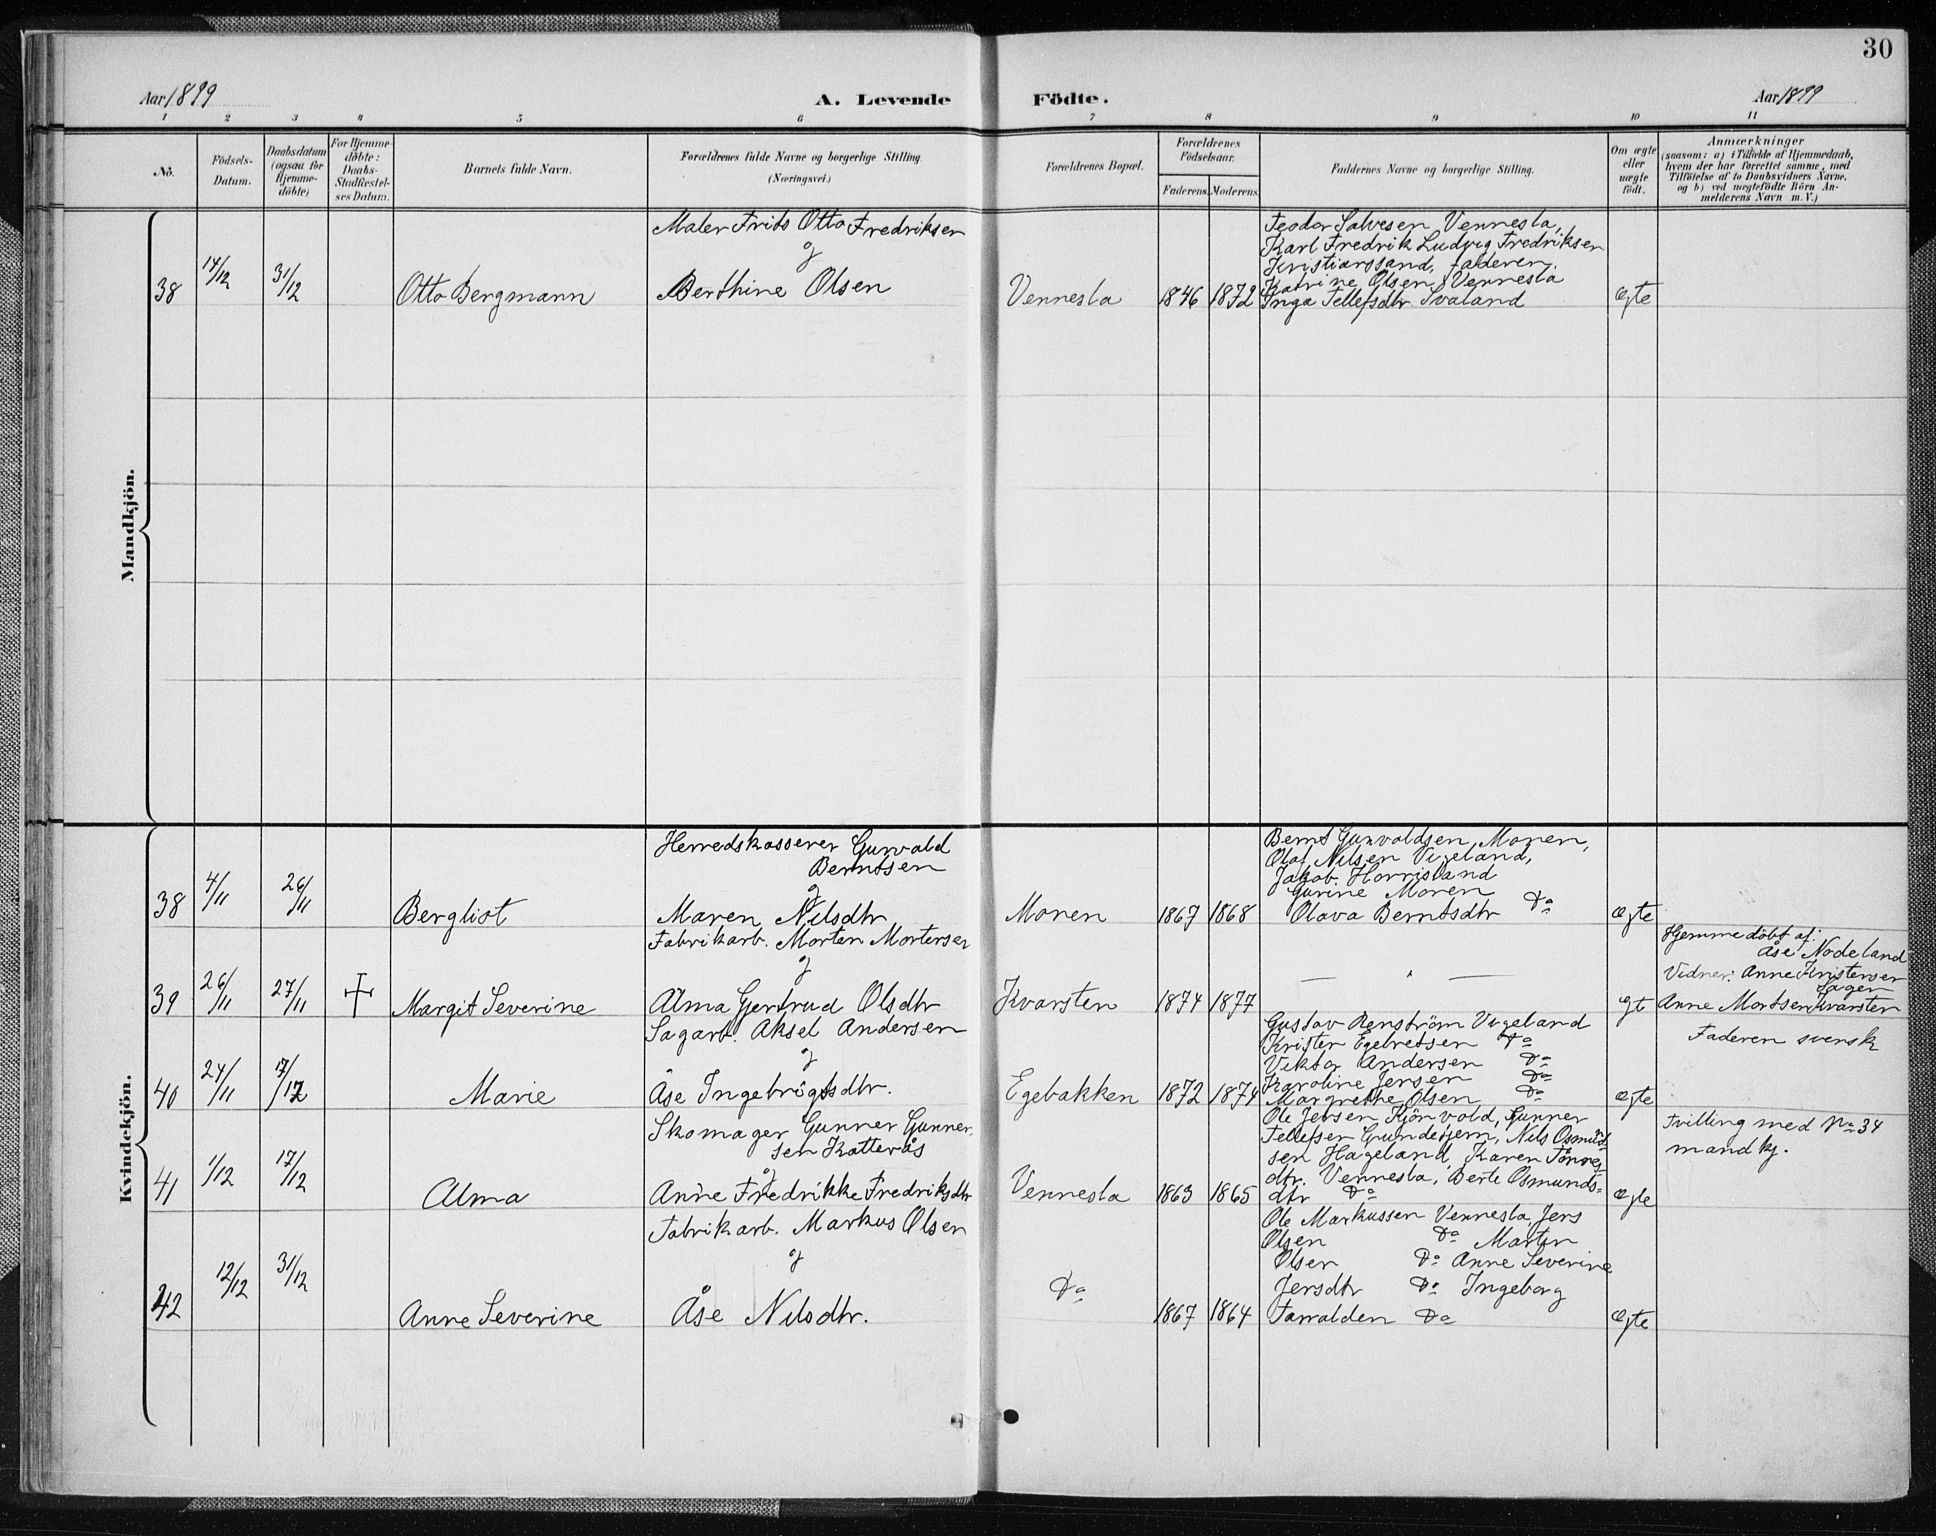 30
Aar 1899 A. Levende Födte. Aar 1899
1 2 3 4 5 6 7 8 9 10 11
No.
Födsels-
Datum.
Daabsdatum
(ogsaa for
Hjemme-
döbte)
For Hjemme-
döbte:
Daabs-
Stadfæstel-
ses Datum.
Barnets fulde Navn.
Forældrenes fulde Navne og borgerlige Stilling.
(Næringsvei.)
Forældrenes Bopæl.
Forældrenes
Födselsaar.
Faderens. Moderens.
Faddernes Navne og borgerlige Stilling.
Om ægte
eller
uægte
födt.
Anmærkninger
(saasom: a) i Tilfælde af Hjemmedaab,
hvem der har forrettet samme, med
Tilföielse af to Daabsvidners Navne,
og b) ved uægtefödte Börn An-
melderens Navn m. V.)
Mandkjön.
38 14/12 31/12 Otto Bergmann
Maler Frits Otto Fredriksen
og
Berthine Olsen
Vennesla 1846 1872
Teodor Salvesen Vennesla,
Karl Fredrik Ludvig Fredriksen
Kristianssand, faderen.
Katrine Olsen, Vennesla
Inga Tellefsdtr. Svaland
ægte
Kvindekjön.
38 4/11 26/11 Bergliot
Herredskasserer Gunvald
Berntsen
og
Maren Nilsdtr
Moren 1867 1868
Bernt Gunvaldsen, Moren,
Olaf Nilsen Vigeland,
Jakob Horrisland
Gurine Moren
Olava Berntsdtr Do
ægte
39 26/11 27/11 Margit Severine
Fabrikarb. Morten Mortensen
og
Alma Gjertrud Olsdtr
Kvarsten 1874 1877
— " —
gt
Hjemmedøbt af:
Åse Nodeland
Vidner: Anne Kristensen
Anne Mortsen Kvarsten
40 24/11 17/12 Marie
Sagarb. Aksel Andersen
og
Åse Ingebrigtsdtr.
Egebakken 1872 1874
Gustav Renström Vigeland
Krister Egebretsen Do
Viktor Andersen Do
Karoline Jensen Do
Margrethe Olsen Do
ægte
Faderen svensk
41 1/12 17/12 Alma
Skomager Gunner Gunner-
sen Katterås
og
Anne Fredrikke Fredriksdtr
Vennesla 1863 1865
Ole Jensen Kjönvold, Gunner
Tellefsen Grundetjern, Nils Osmund-
sen Hageland, Karen Tønnes-
dtr. Vennesla, Berte Osmunds-
dtr Do
ægte
Tvilling med No 34
mandkj.
42 12/12 31/12 Anne Severine
Fabrikarb. Markus Olsen
og
Åse Nilsdtr.
Do 1867 1864
Ole Markussen Vennesla, Jens
Olsen Do Martin
Olsen Do Anne Severine
Jensdtr Do Ingeborg
Do
ægte